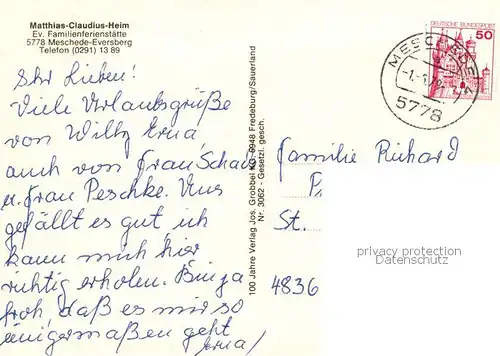 Matthias-Claudius-Heim
Ev. Familienferienstätte
5778 Meschede-Eversberg
Telefon (0291) 13 89
Ihr Lieben!
Viele Urlaubsgrüße
von Willy Erna
auch von Frau Schau
u. Frau Peschke. Uns
gefällt es gut ich
kann mich hier
richtig erholen. Bin ja
froh, daß es mir so
einigermaßen geht
Erna/
100 Jahre Verlag Jos. Grobbel KG 5948 Fredeburg/Sauerland
Nr. 3062 - Gesetzl. gesch.
DEUTSCHE BUNDESPOST
50
MESCHEDE
5778
Familie Richard
St.
4836
privacy protection
Datenschutz